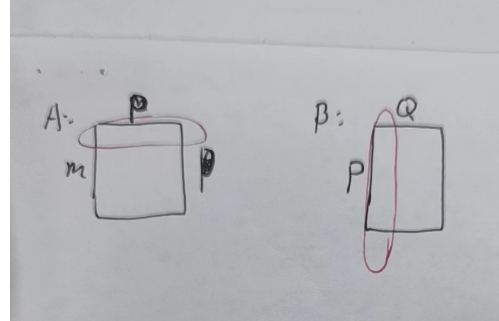 A: P
m P
B: Q
P